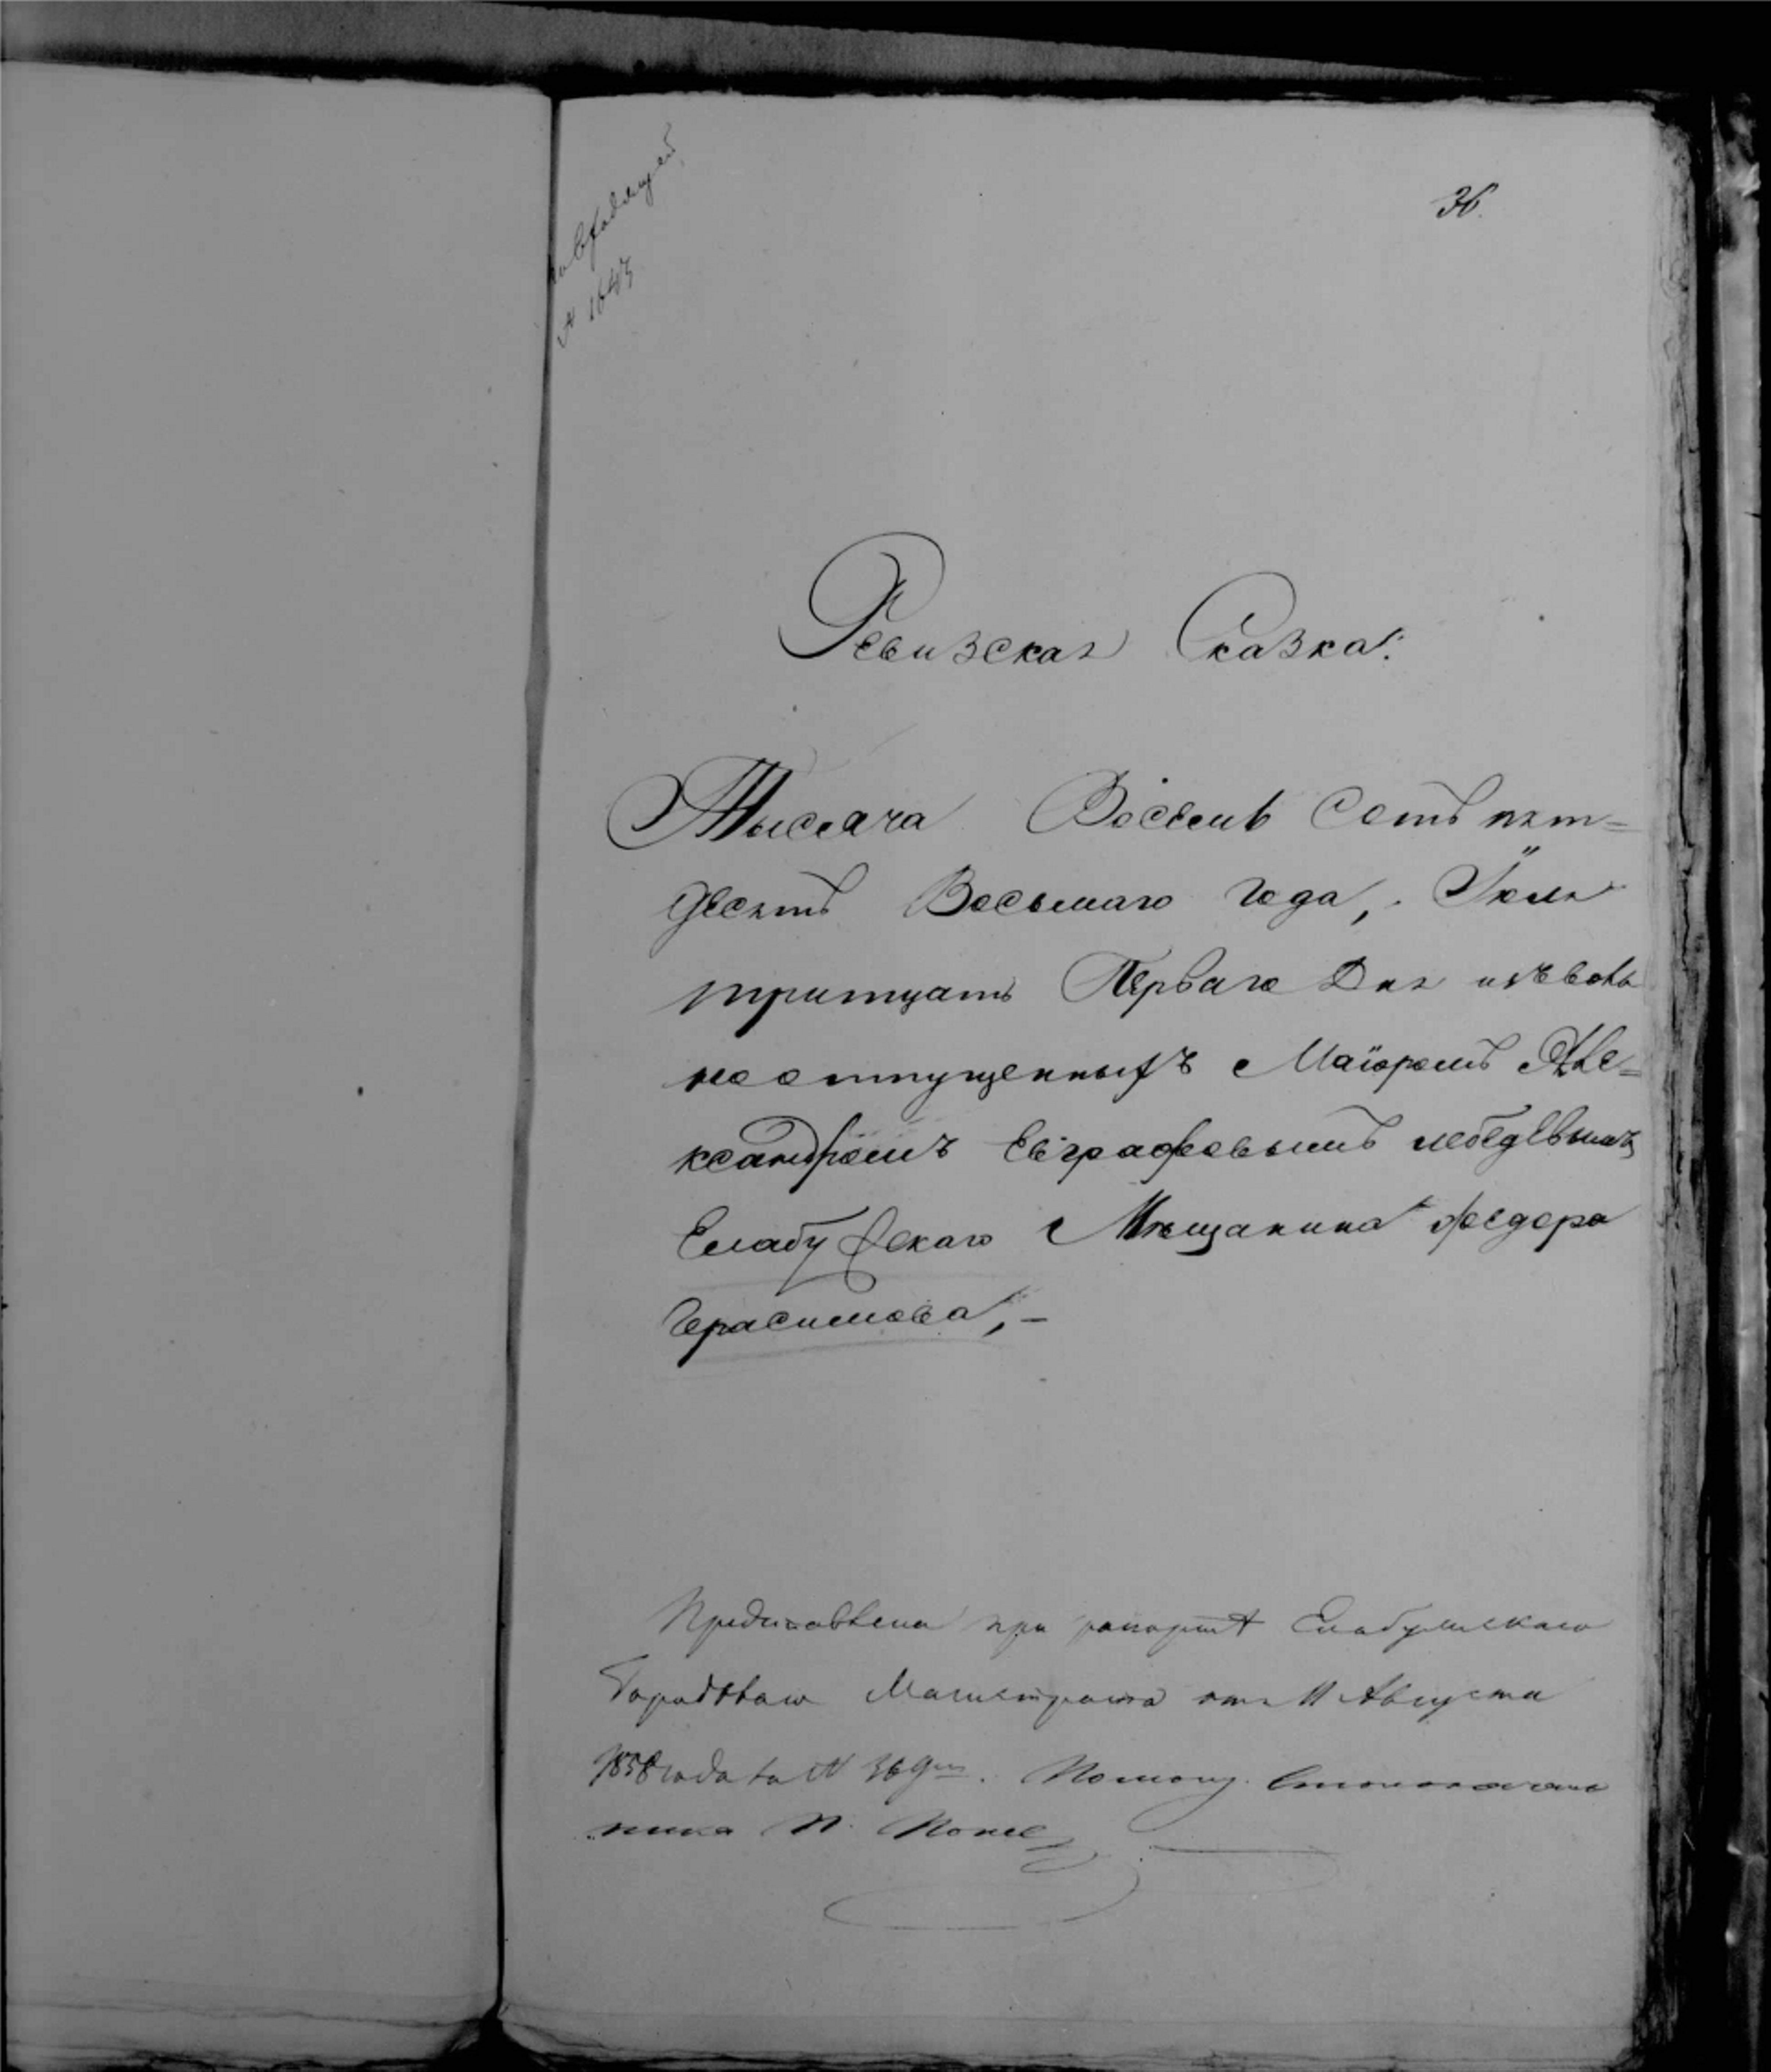 36.
№ 1643
Ревизская Сказка:
Тысяча Восемь Сотъ пят=
десятъ Восьмаго года, Іюля
тритцать Перваго Дня изъ воль
но отпущенныхъ Маіоромъ Але=
ксандромъ Евграфовымъ лебедевымъ
Елабужскаго Мѣщанина Федора
Герасимова, –
Представлена при рапортѣ Елабужскаго
Городоваго Магистрата отъ 11 Августа
1858 года за №. Помощ. Столоначаль
ника П.